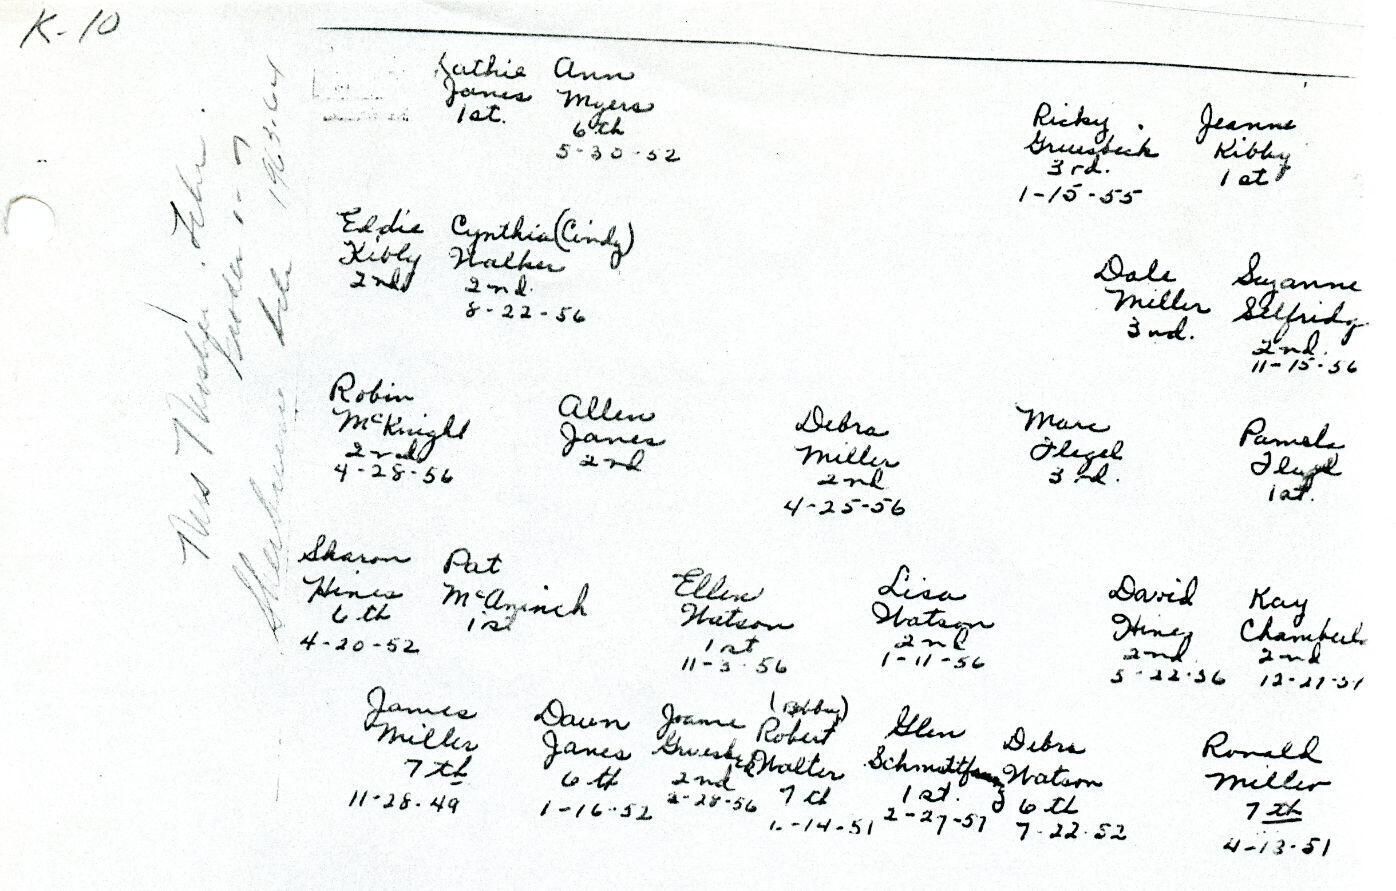 K-10
Kathie Ann
Janes Myers
1st. 6th
5-30-52
Ricky Jeanne
Gruesbeck Kibby
3rd. 1st
1-15-55
Eddie Cynthia (Cindy)
Kibby Walker
2nd 2nd.
8-22-56
Dale Suzanne
Miller Selfridg
3nd. 2nd.
11-15-56
Robin
McKnight
2nd
4-28-56
Allen
Janes
2nd
Debra
Miller
2nd
4-25-56
Marc
Flegel
3rd.
Pamela
Flegel
1st.
Sharon Pat
Hines McAninch
6th 1st
4-20-52
Ellen
Watson
1st
11-3-56
Lisa
Watson
2nd
1-11-56
David Kay
Hines Chamberl
2nd. 2nd
5-22-56
James
Miller
7th
11-28-49
Dawn
Janes
6th
1-16-52
Joanne
Gruesbeck
2nd
2-28-56
(Bobby)
Robert
Walter
7th
-14-51
Glen
1st.
2-27-57
Debra
Watson
6th
7-22-52
Ronald
Miller
7th
4-13-51
Mrs
1963-64